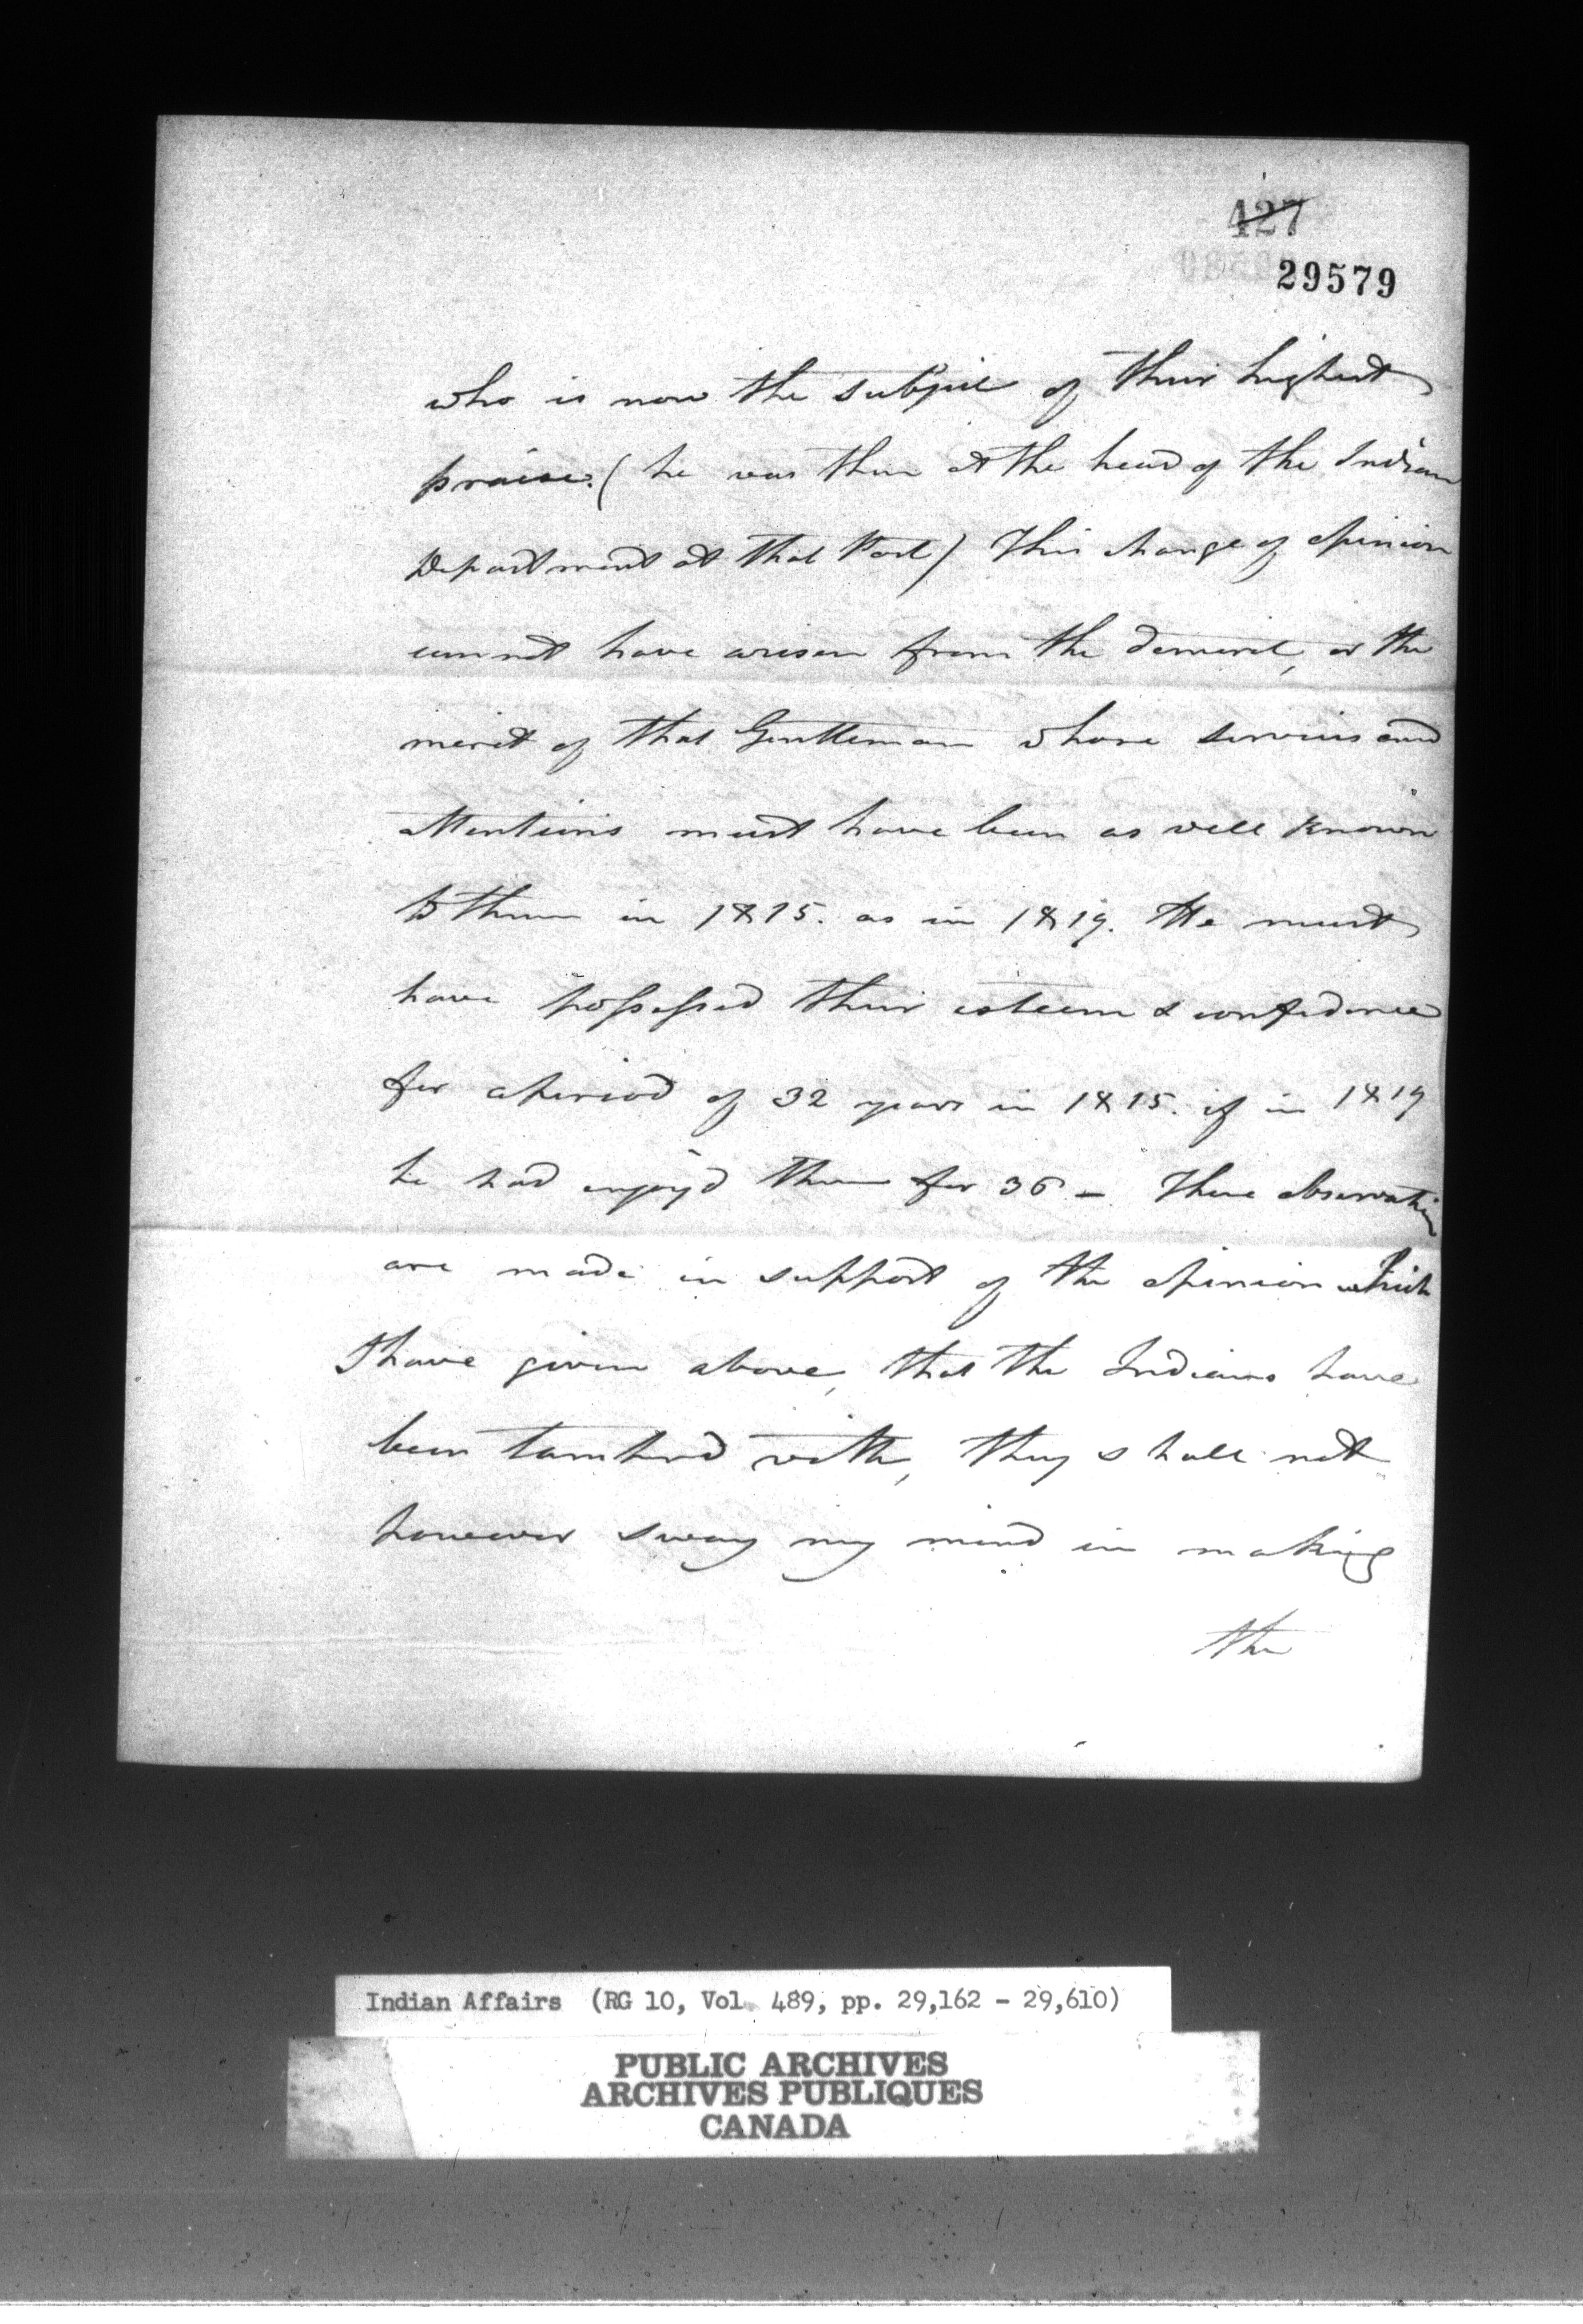 427
29579
who is now the subject of their highest
praise. (he was then at the head of the Indian
Department at that Post) This change of opinion
cannot have arisen from the demerit, or the
merit of that Gentleman whose services and
attentions must have been as well known
to them in 1815. as in 1819. He must
have possessed their esteem & confidence
for a period of 32 years in 1815. if in 1819
he had enjoy'd them for 36 – These observations
are made in support of the opinion which
I have given above, that the Indians have
been tamperd with, they shall not
however sway my mind in making
the
Indian Affairs (RG 10, Vol. 489, pp. 29,162 - 29,610)
PUBLIC ARCHIVES
ARCHIVES PUBLIQUES
CANADA